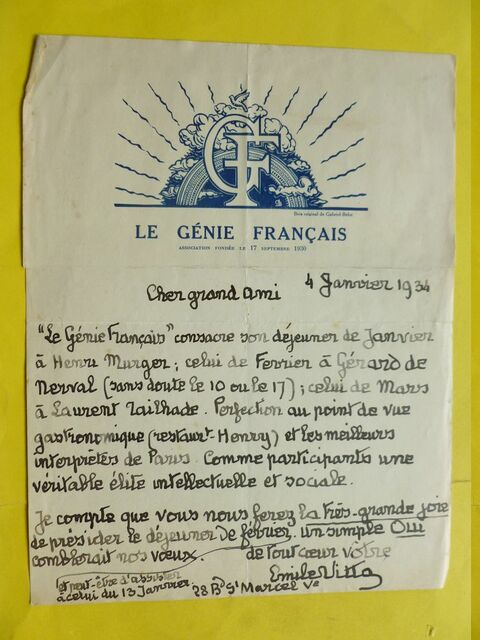 GF
Bois original de Gabriel Belot
LE GÉNIE FRANÇAIS
ASSOCIATION FONDÉE LE 17 SEPTEMBRE 1930
4 Janvier 1934
Cher grand Ami
"Le Génie Français" consacre son déjeuner de Janvier
à Henri Murger ; celui de Fevrier à Gérard de
Nerval (sans doute le 10 ou le 17) ; celui de Mars
à Laurent Tailhade. Perfection au point de vue
gastronomique (restaurt Henry) et les meilleurs
interprètes de Paris. Comme participants une
véritable élite intellectuelle et sociale.
Je compte que vous nous ferez la très-grande joie
de présider le déjeuner de février. Un simple Oui
comblerait nos vœux. de tout cœur votre
et peut-être d'assister
à celui du 13 Janvier
Emile Vitta
28 Bd St Marcel Ve